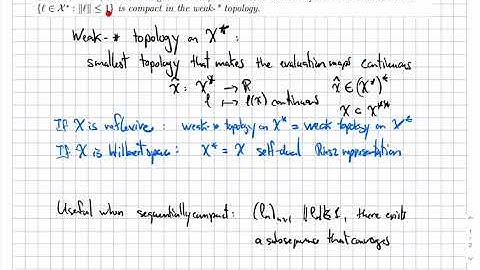 {ℓ ∈ X* : ‖ℓ‖ ≤ 1} is compact in the weak-* topology.
Weak-* topology on X* :
smallest topology that makes the evaluation maps continuous
x̂ : X* → ℝ x̂ ∈ (X*)*
ℓ → ℓ(x) continuous X ⊂ X**
If X is reflexive : weak-* topology on X* = weak topology on X*
If X is Hilbert space : X* = X self-dual Riesz representation
Useful when sequentially compact : (ln)n≥1 ‖ln‖≤1, there exists
a subsequence that converges